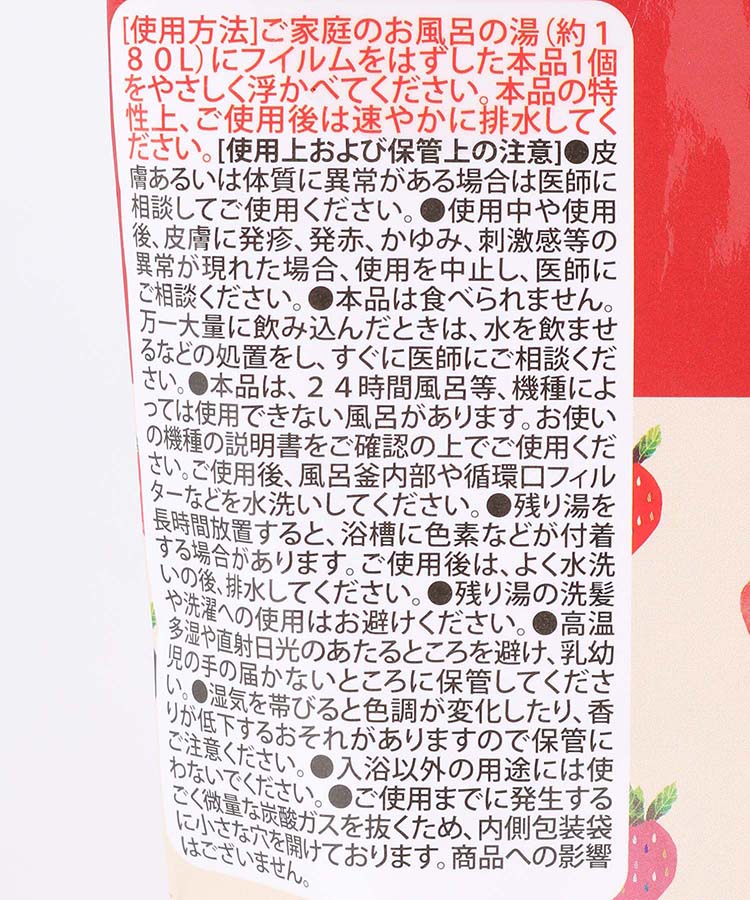 [使用方法]ご家庭のお風呂の湯(約1
80L)にフイルムをはずした本品1個
をやさしく浮かべてください。本品の特
性上、ご使用後は速やかに排水してく
ださい。[使用上および保管上の注意]●皮
膚あるいは体質に異常がある場合は医師に
相談してご使用ください。●使用中や使用
後、皮膚に発疹、発赤、かゆみ、刺激感等の
異常が現れた場合、使用を中止し、医師に
ご相談ください。●本品は食べられません。
万一大量に飲み込んだときは、水を飲ませ
るなどの処置をし、すぐに医師にご相談くだ
さい。●本品は、24時間風呂等、機種によ
っては使用できない風呂があります。お使い
の機種の説明書をご確認の上でご使用くだ
さい。ご使用後、風呂釜内部や循環口フィル
ターなどを水洗いしてください。●残り湯を
長時間放置すると、浴槽に色素などが付着
する場合があります。ご使用後は、よく水洗
いの後、排水してください。●残り湯の洗髪
や洗濯への使用はお避けください。●高温
多湿や直射日光のあたるところを避け、乳幼
児の手の届かないところに保管してくださ
い。●湿気を帯びると色調が変化したり、香
りが低下するおそれがありますので保管に
ご注意ください。●入浴以外の用途には使
わないでください。●ご使用までに発生する
ごく微量な炭酸ガスを抜くため、内側包装袋
に小さな穴を開けております。商品への影響
はございません。